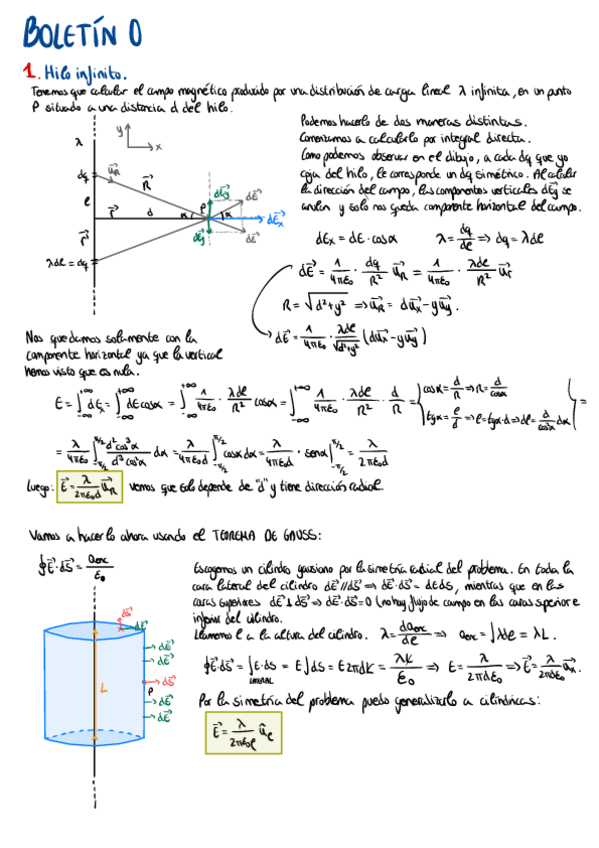 BOLETÍN 0
1. Hilo infinito.
Tenemos que calcular el campo magnético producido por una distribución de carga lineal λ infinita, en un punto
P situado a una distancia d del hilo.
Podemos hacerlo de dos maneras distintas.
Comenzamos a calcularlo por integral directa.
Como podemos observar en el dibujo, a cada dq que yo
coja del hilo, le corresponde un dq simétrico. Al calcular
la dirección del campo, las componentes verticales dE⃗y se
anulan y solo nos queda componente horizontal del campo.
y x
λ
dq u⃗R R⃗ dE⃗y dE⃗
l r⃗ d α P α dE⃗x
r⃗ dE⃗y dE⃗
λdl = dq
dEx = dE·cosα λ = dq/dl ⇒ dq = λdl
dE⃗ = 1/4πε₀ · dq/R² u⃗R = 1/4πε₀ · λdl/R² u⃗r
R = √(d²+y²) ⇒ u⃗R = du⃗x - yu⃗y.
dE⃗ = 1/4πε₀ · λdl/√(d²+y²) (du⃗x - yu⃗y)
Nos quedamos solamente con la
componente horizontal ya que la vertical
hemos visto que es nula.
E = ∫₋∞^+∞ dEx = ∫₋∞^+∞ dE cosα = ∫₋∞^+∞ 1/4πε₀ · λdl/R² cosα = ∫₋∞^+∞ 1/4πε₀ · λdl/R² · d/R = { cosα = d/R ⇒ R = d/cosα
tgα = l/d ⇒ l = tgα·d ⇒ dl = d/cos²α dα } =
= λ/4πε₀ ∫₋π/2^π/2 d² cos³α/d³ cos²α dα = λ/4πε₀d ∫₋π/2^π/2 cosα dα = λ/4πε₀d · senα |₋π/2^π/2 = λ/2πε₀d
Luego: E⃗ = λ/2πε₀d u⃗R vemos que solo depende de "d" y tiene dirección radial
Vamos a hacerlo ahora usando el TEOREMA DE GAUSS:
∮E⃗·dS⃗ = qenc/ε₀
Escogemos un cilindro gaussiano por la simetría radial del problema. En toda la
cara lateral del cilindro dE⃗ // dS⃗ ⇒ dE⃗·dS⃗ = dEdS, mientras que en las
caras superiores dE⃗ ⊥ dS⃗ ⇒ dE⃗·dS⃗ = 0 (no hay flujo de campo en las caras sperior e
inferior del cilindro.
Llamemos L a la altura del cilindro. λ = dqenc/dl ⇒ qenc = ∫λdl = λL.
∮E⃗·dS⃗ = ∫LATERAL E·dS = E∫dS = E2πdL = λL/ε₀ ⇒ E = λ/2πdε₀ ⇒ E⃗ = λ/2πdε₀ u⃗R.
Por la simetría del problema puedo generalizarlo a cilíndricas:
E⃗ = λ/2πε₀ρ ûρ
dS⃗
dE⃗
dE⃗
dE⃗
L dS⃗
P
dE⃗
dE⃗